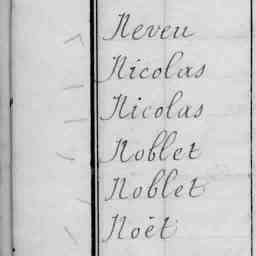 Neveu
Nicolas
Nicolas
Noblet
Noblet
Noët